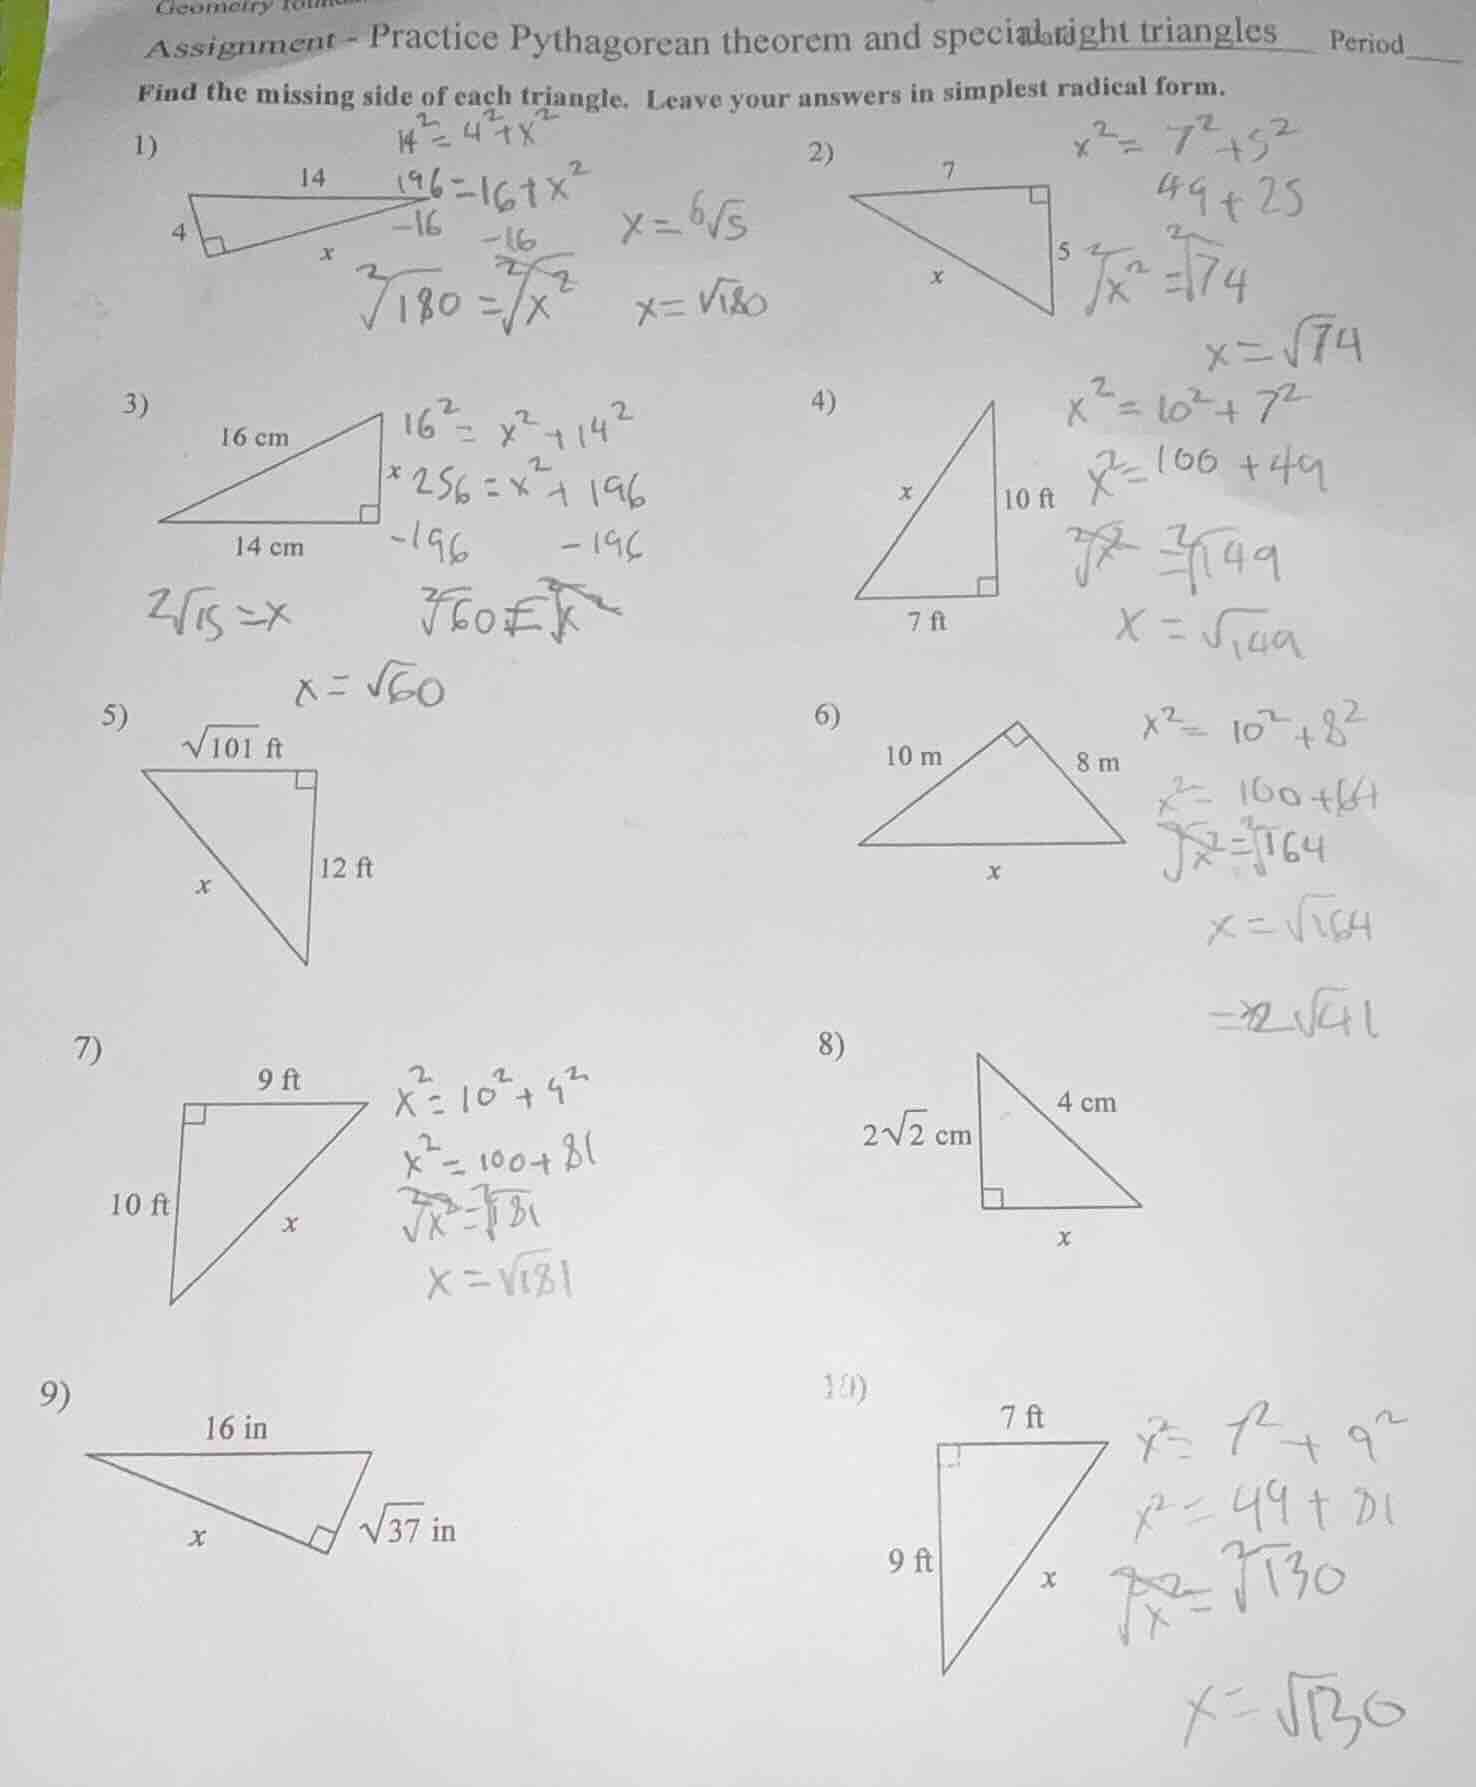 Geometry
Assignment - Practice Pythagorean theorem and special right triangles Period
Find the missing side of each triangle. Leave your answers in simplest radical form.
1)
14
4
x
14² = 4² + x²
196 = 16 + x²
-16 -16
²√180 = ²√x²
x = 6√5
x = √180
2)
7
5
x
x² = 7² + 5²
49 + 25
²√x² = ²√74
x = √74
3)
16 cm
x
14 cm
16² = x² + 14²
256 = x² + 196
-196 -196
²√60 = ²√x²
2√15 = x
x = √60
4)
x
10 ft
7 ft
x² = 10² + 7²
x² = 100 + 49
²√x² = ²√149
x = √149
5)
√101 ft
12 ft
x
6)
10 m
8 m
x
x² = 10² + 8²
x² = 100 + 64
²√x² = ²√164
x = √164
= 2√41
7)
9 ft
10 ft
x
x² = 10² + 9²
x² = 100 + 81
²√x² = ²√181
x = √181
8)
2√2 cm
4 cm
x
9)
16 in
√37 in
x
10)
7 ft
9 ft
x
x² = 7² + 9²
x² = 49 + 81
²√x² = ²√130
x = √130